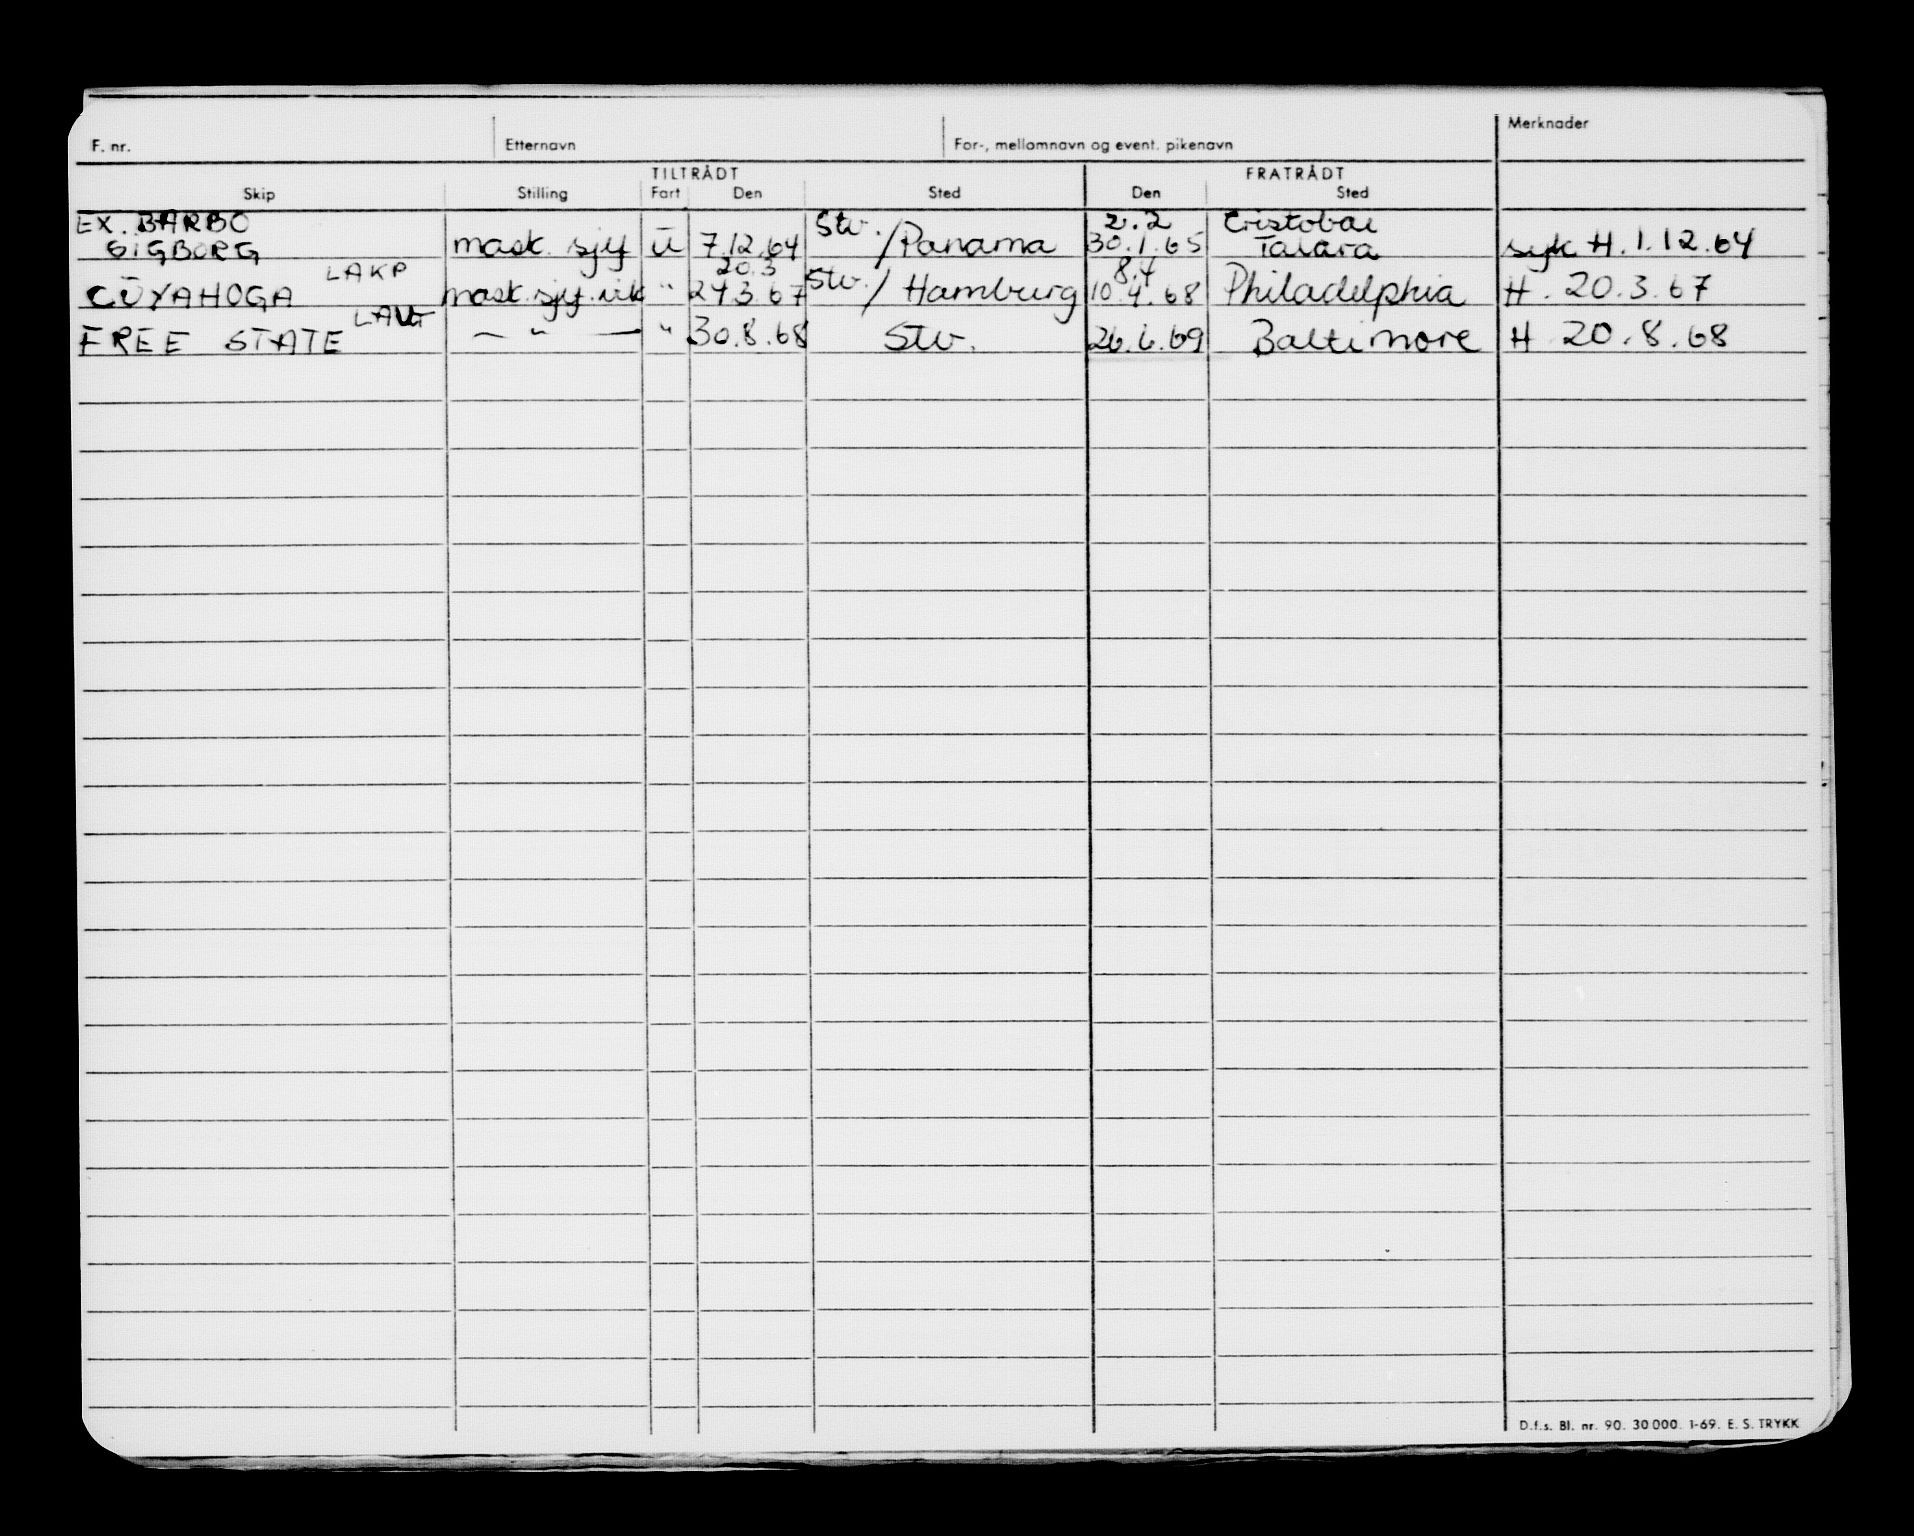 F. nr. Etternavn For-, mellomnavn og event. pikenavn Merknader
TILTRÅDT FRATRÅDT
Skip Stilling Fart Den Sted Den Sted
EX. BARBO Stv. 2.2 Cristobal
SIGBORG mask. sjef U 7.12.64 /Panama 30.1.65 Talara syk H. 1.12.64
LAKP 20.3 Stv. 8.4
CUYAHOGA mask. sjef. vik " 24.3.67 / Hamburg 10.4.68 Philadelphia H. 20.3.67
FREE STATE — " — " 30.8.68 Stv. 26.6.69 Baltimore H 20.8.68
D.f.s. Bl. nr. 90. 30000. 1-69. E. S. TRYKK